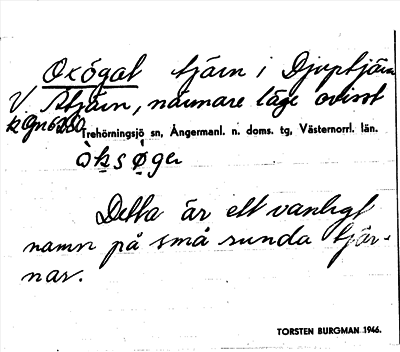 Oxögat tjärn i Djuptjärn
V. Atjärn, närmare läge ovisst
Trehörningsjö sn, Ångermanl. n. doms. tg, Västernorrl. län.
òksøga
Detta är ett vanligt
namn på små runda tjär-
nar.
TORSTEN BURGMAN 1946.